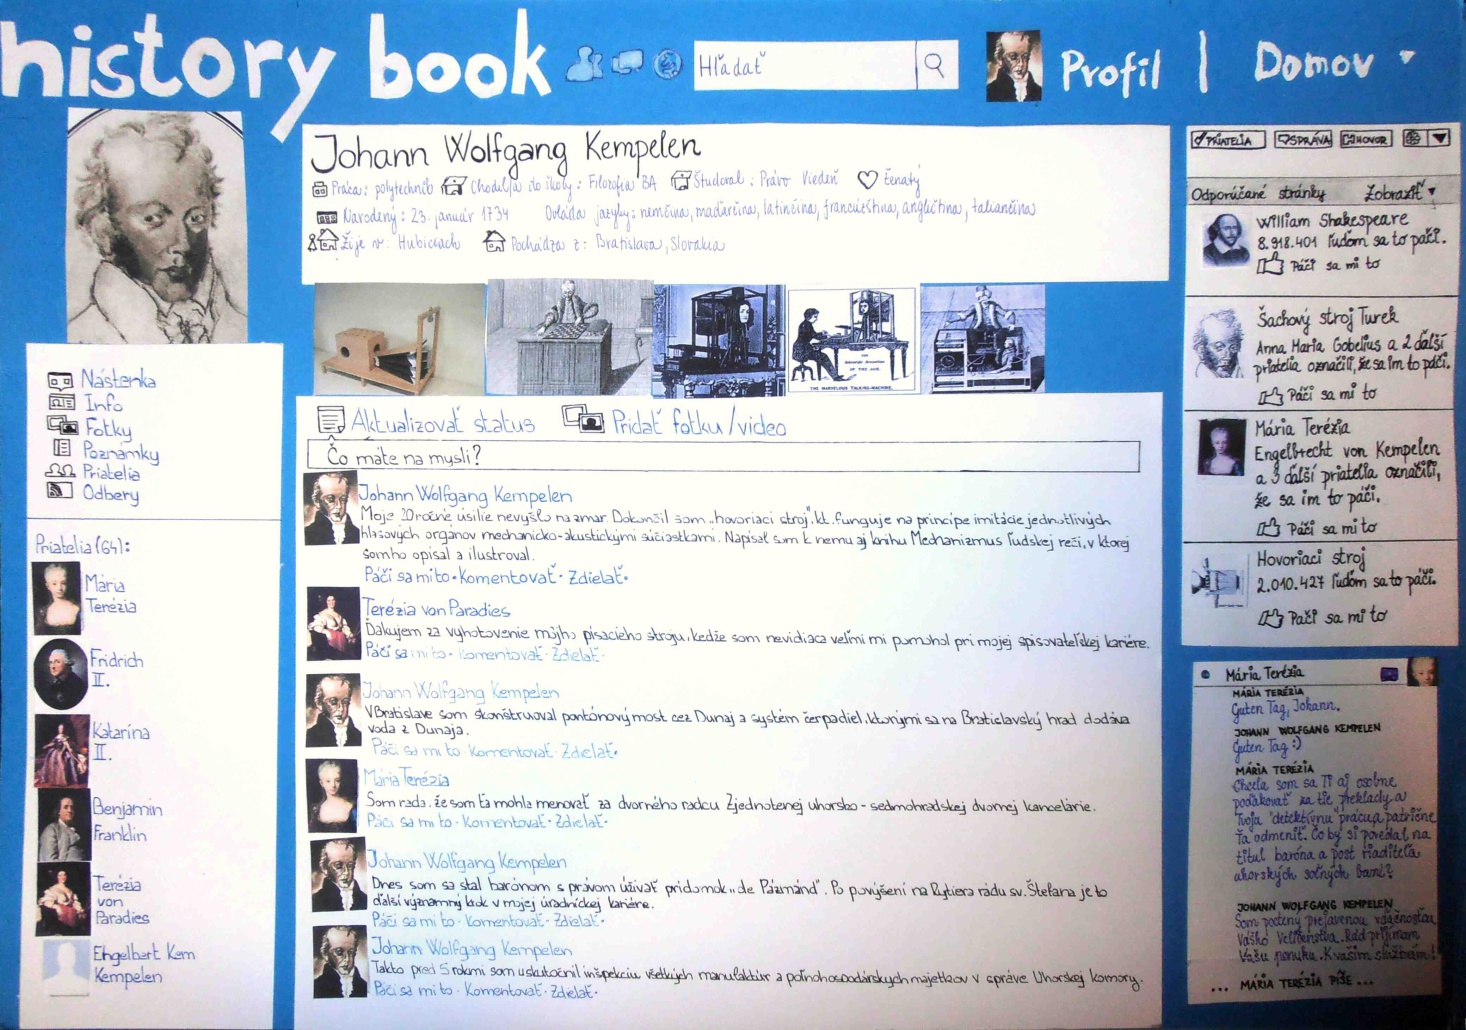 history book
Hľadať
Profil | Domov
Johann Wolfgang Kempelen
Práca: polytechnik Chodil/a do školy: Filozofia BA Študoval: Právo Viedeň Ženatý
Narodený: 23. január 1734 Ovláda jazyky: nemčina, maďarčina, latinčina, francúzština, angličtina, taliančina
Žije v: Hubiciach Pochádza z: Bratislava, Slovakia
THE MARVELOUS TALKING-MACHINE.
Nástenka
Info
Fotky
Poznámky
Priatelia
Odbery
Priatelia (64):
Mária
Terézia
Fridrich
II.
Katarína
II.
Benjamin
Franklin
Terézia
von
Paradies
Engelbert Kem
Kempelen
Aktualizovať status Pridať fotku/video
Čo máte na mysli?
Johann Wolfgang Kempelen
Moje 20ročné úsilie nevyšlo na zmar. Dokončil som „hovoriaci stroj", kt. funguje na princípe imitácie jednotlivých
hlasových orgánov mechanicko-akustickými súčiastkami. Napísal som k nemu aj knihu Mechanizmus ľudskej reči, v ktorej
somho opísal a ilustroval.
Páči sa mi to · Komentovať · Zdieľať ·
Terézia von Paradies
Ďakujem za vyhotovenie môjho písacieho stroju, keďže som nevidiaca veľmi mi pomohol pri mojej spisovateľskej kariére.
Páči sa mi to · Komentovať · Zdieľať ·
Johann Wolfgang Kempelen
V Bratislave som skonštruoval pontónový most cez Dunaj a systém čerpadiel, ktorými sa na Bratislavský hrad dodáva
voda z Dunaja.
Páči sa mi to · Komentovať · Zdieľať ·
Mária Terézia
Som rada, že som ťa mohla menovať za dvorného radcu Zjednotenej uhorsko - sedmohradskej dvornej kancelárie.
Páči sa mi to · Komentovať · Zdieľať ·
Johann Wolfgang Kempelen
Dnes som sa stal barónom s právom užívať prídomok „de Pázmánd". Po povýšení na Rytiera rádu sv. Štefana je to
ďalší významný krok v mojej úradníckej kariére.
Páči sa mi to · Komentovať · Zdieľať ·
Johann Wolfgang Kempelen
Takto pred 5 rokmi som uskutočnil inšpekciu všetkých manufaktúr a poľnohospodárskych majetkov v správe Uhorskej komory.
Páči sa mi to · Komentovať · Zdieľať ·
PRIATELIA SPRÁVA HOVOR
Odporúčané stránky Zobraziť
William Shakespeare
8.918.401 ľuďom sa to páči.
Páči sa mi to
Šachový stroj Turek
Anna Maria Gobelius a 2 ďalší
priatelia označili, že sa im to páči.
Páči sa mi to
Mária Terézia
Engelbrecht von Kempelen
a 3 ďalší priatelia označili,
že sa im to páči.
Páči sa mi to
Hovoriaci stroj
2.010.427 ľuďom sa to páči.
Páči sa mi to
Mária Terézia
MÁRIA TERÉZIA
Guten Tag, Johann.
JOHANN WOLFGANG KEMPELEN
Guten Tag :)
MÁRIA TERÉZIA
Chcela som sa Ti aj osobne
poďakovať za tie preklady a
Tvoja "detektívnu" prácu a patrične
Ťa odmeniť. Čo by si povedal na
titul baróna a post riaditeľa
uhorských soľných baní?
JOHANN WOLFGANG KEMPELEN
Som poctený prejavenou vďačnosťou
Vášho Veličenstva. Rád prijímam
Vašu ponuku. K vašim službám!
... MÁRIA TERÉZIA PÍŠE ...